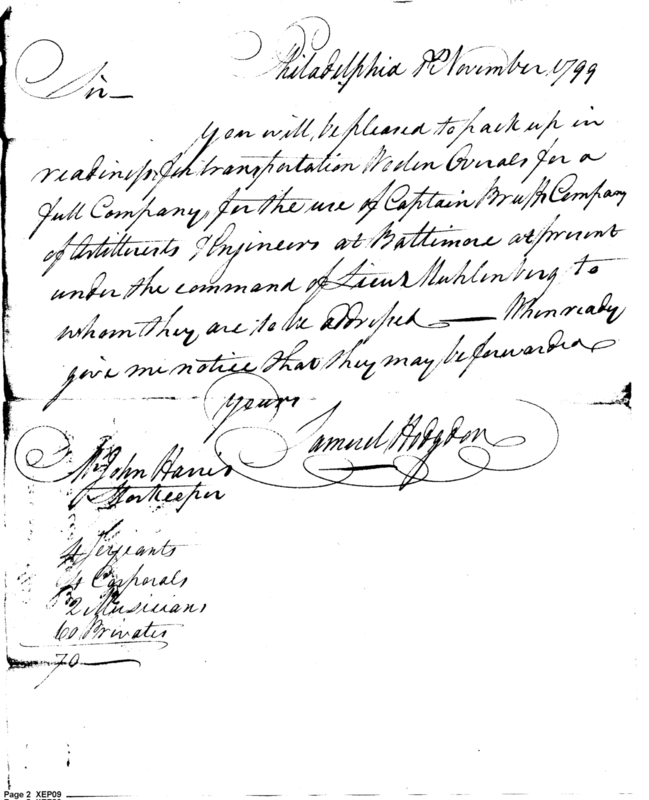 Philadelphia November 1799
Sir —
you will be pleased to pack up in
readiness for transportation Woolen Overals for a
full Company, for the use of Captain Company
of Artillerists & Engineers at Baltimore at present
under the command of Lieut Muhlenberg to
whom they are to be addressed — When ready
give me notice that they may be forwarded
yours
Samuel Hodgdon
Mr John Harris
Storekeeper
4 Serjeants
4 Corporals
2 Musicians
60 Privates
70 —
Page 2 XEP09